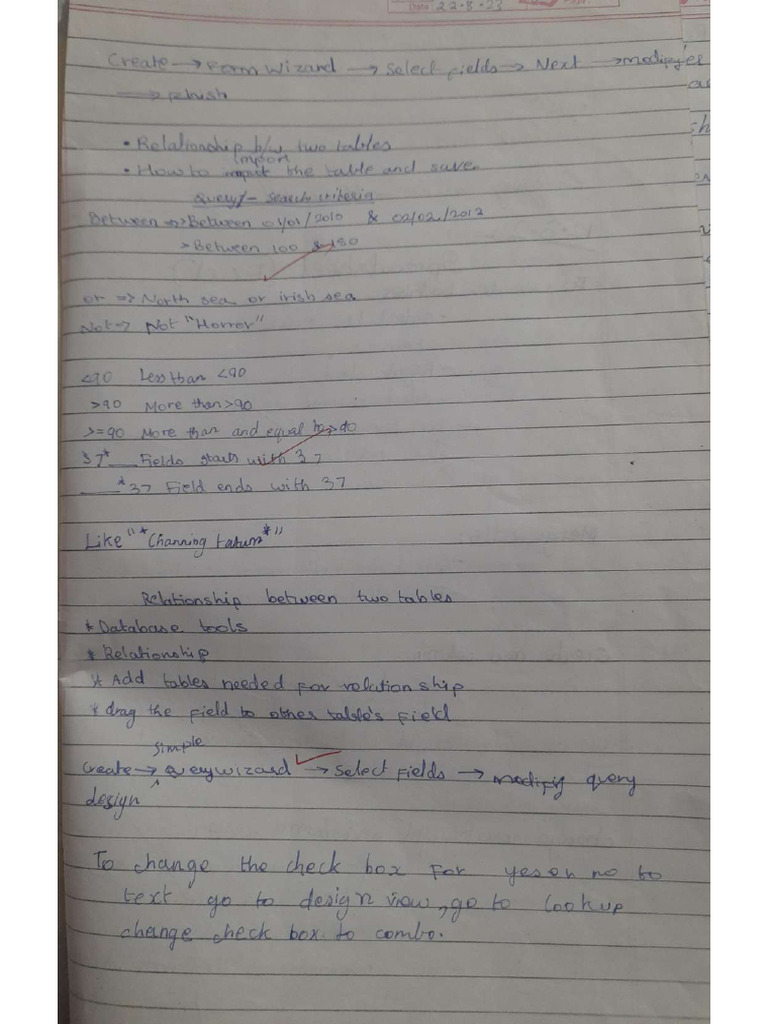 Date 22-8-23
Create → Form Wizard → Select fields → Next → modify
→ Finish
• Relationship b/w two tables
• How to import the table and save.
Query/- search criteria
Between => Between 01/01/2010 & 02/02/2012
> Between 100 & 150
or => North sea or irish sea
Not => Not "Horror"
<90 Less than <90
>90 More than >90
>=90 More than and equal to > 90
37*__ Fields starts with 37
___*37 Field ends with 37
Like "*Channing tatum*"
Relationship between two tables
* Database tools
* Relationship
* Add tables needed for relation ship
* drag the field to other table's field
simple
Create → query wizard → Select Fields → modify query
design
To change the check box for yes or no to
text go to design view, go to lookup
change check box to combo.